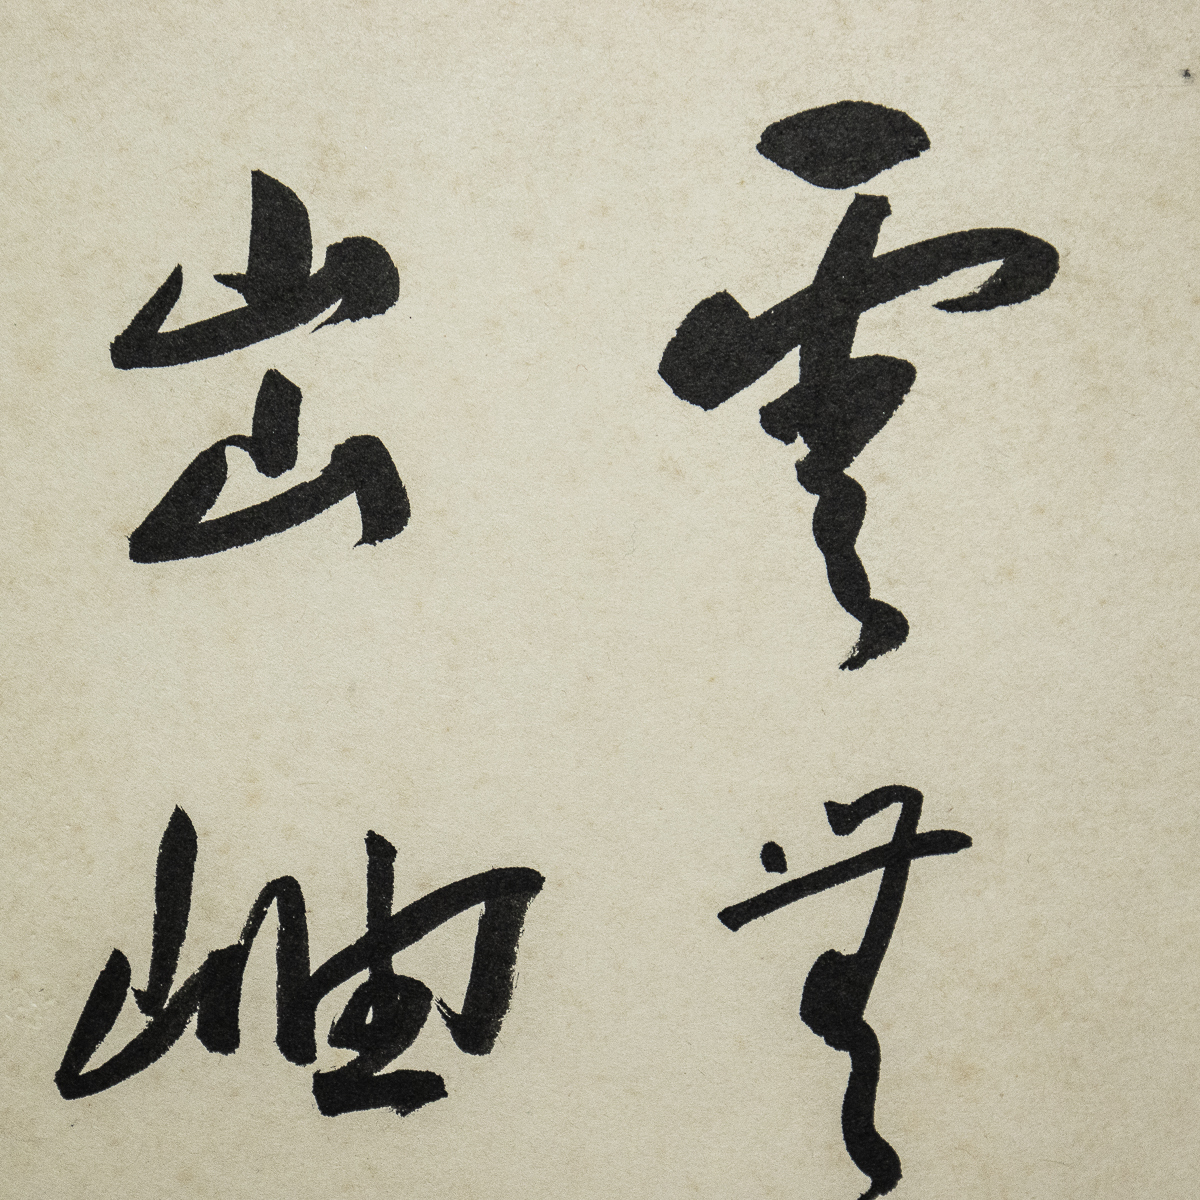 雲無
出岫